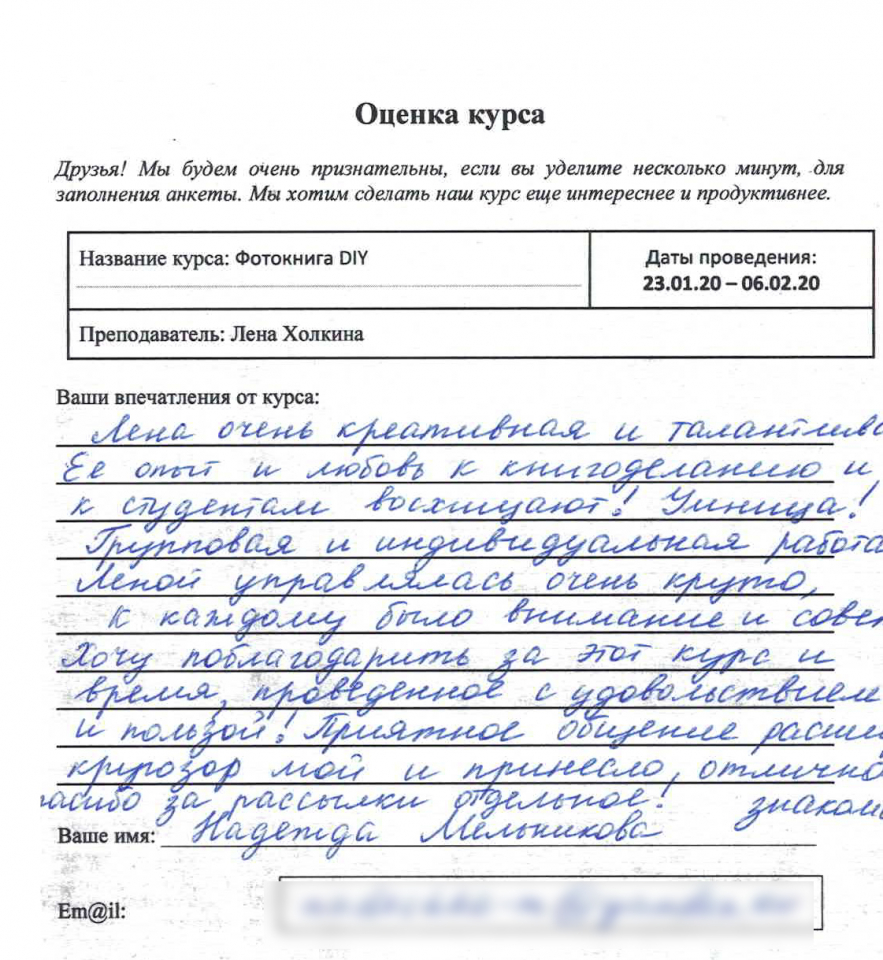 Оценка курса
Друзья! Мы будем очень признательны, если вы уделите несколько минут, для
заполнения анкеты. Мы хотим сделать наш курс еще интереснее и продуктивнее.
Название курса: Фотокнига DIY
Даты проведения:
23.01.20 – 06.02.20
Преподаватель: Лена Холкина
Ваши впечатления от курса:
Лена очень креативная и талантлива
Ее опыт и любовь к книгоделанию и
к студентам восхищают! Умница!
Групповая и индивидуальная работа
Леной управлялась очень круто,
К каждому было внимание и совет
Хочу поблагодарить за этот курс и
время, проведенное с удовольствием
и пользой! Приятное общение расши
кругозор мой и принесло, отлично
пасибо за рассылки отдельное! знаком
Ваше имя: Надежда Мельникова
Em@il: